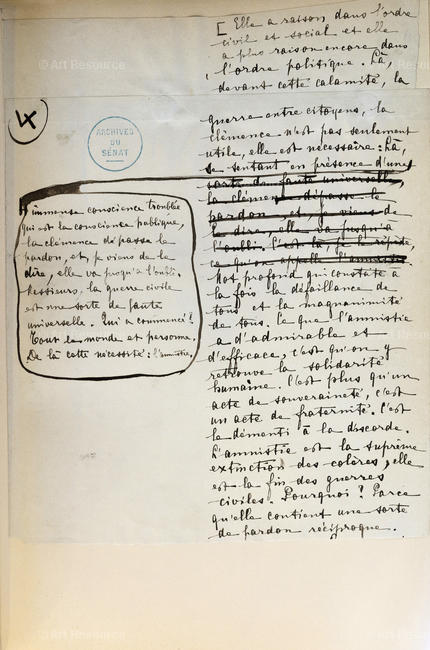 [ Elle a raison dans l'ordre
civil et social et elle
a plus raison encore dans
l'ordre politique. Là,
devant cette calamité, la
guerre entre citoyens, la
clémence n'est pas seulement
utile, elle est nécessaire : Là,
se sentant en présence d'une
sorte de faute universelle,
la clémence dépasse le
pardon, et, je viens de
le dire, elle va jusqu'à
l'oubli. C'est là, je le répète,
ce qu'on appelle l'amnistie.
Mot profond qui constate à
la fois la défaillance de
tous et la magnanimité
de tous. Ce que l'amnistie
a d'admirable et
d'efficace, c'est qu'on y
retrouve la solidarité
humaine. C'est plus qu'un
acte de souveraineté, c'est
un acte de fraternité. C'est
le démenti à la discorde.
L'amnistie est la suprême
extinction des colères, elle
est la fin des guerres
civiles. Pourquoi ? Parce
qu'elle contient une sorte
de pardon réciproque.
4
ARCHIVES
DU
SÉNAT
immense conscience troublée
qui est la conscience publique,
la clémence dépasse le
pardon, et, je viens de le
dire, elle va jusqu'à l'oubli.
Messieurs, la guerre civile
est une sorte de faute
universelle. Qui a commencé ?
Tout le monde et personne.
De là cette nécessité : l'amnistie,
© Art Resource